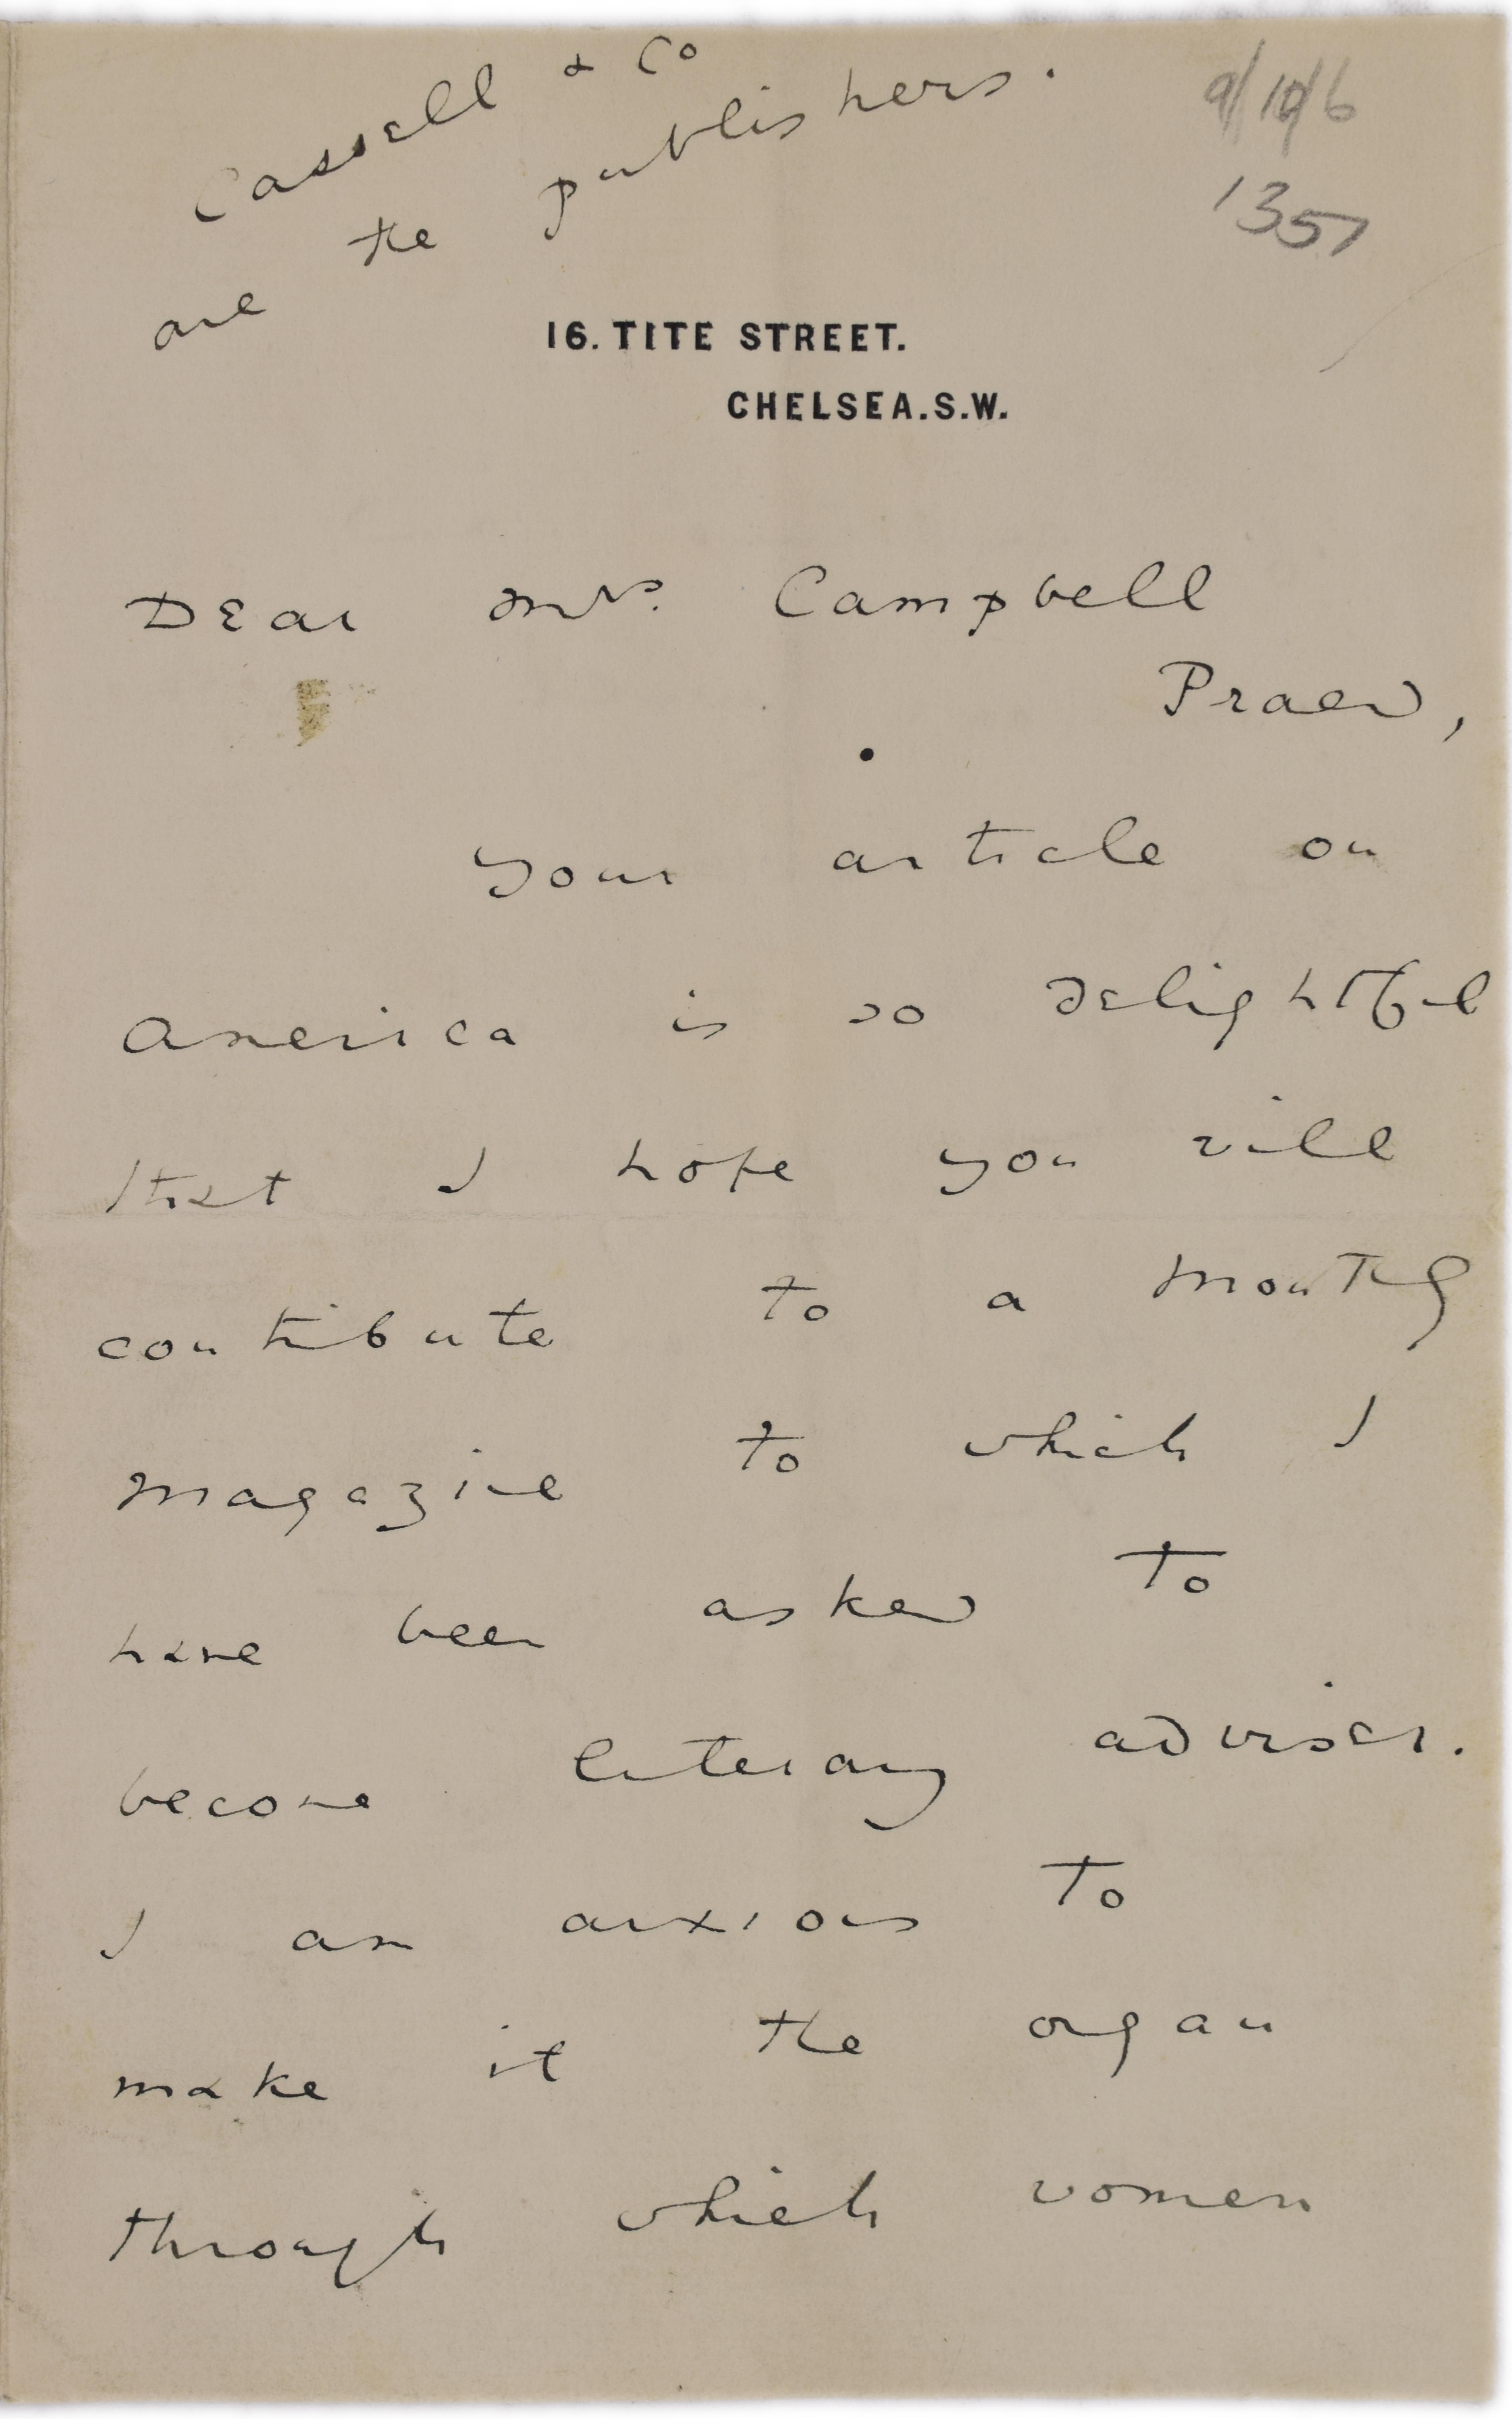 Cassell & Co
are the publishers.
9/10/6
1357
16. TITE STREET.
CHELSEA. S.W.
Dear Mrs. Campbell
Praed,
Your article on
America is so delightful
that I hope you will
contribute to a monthly
magazine to which I
have been asked to
become literary adviser.
I am anxious to
make it the organ
through which women